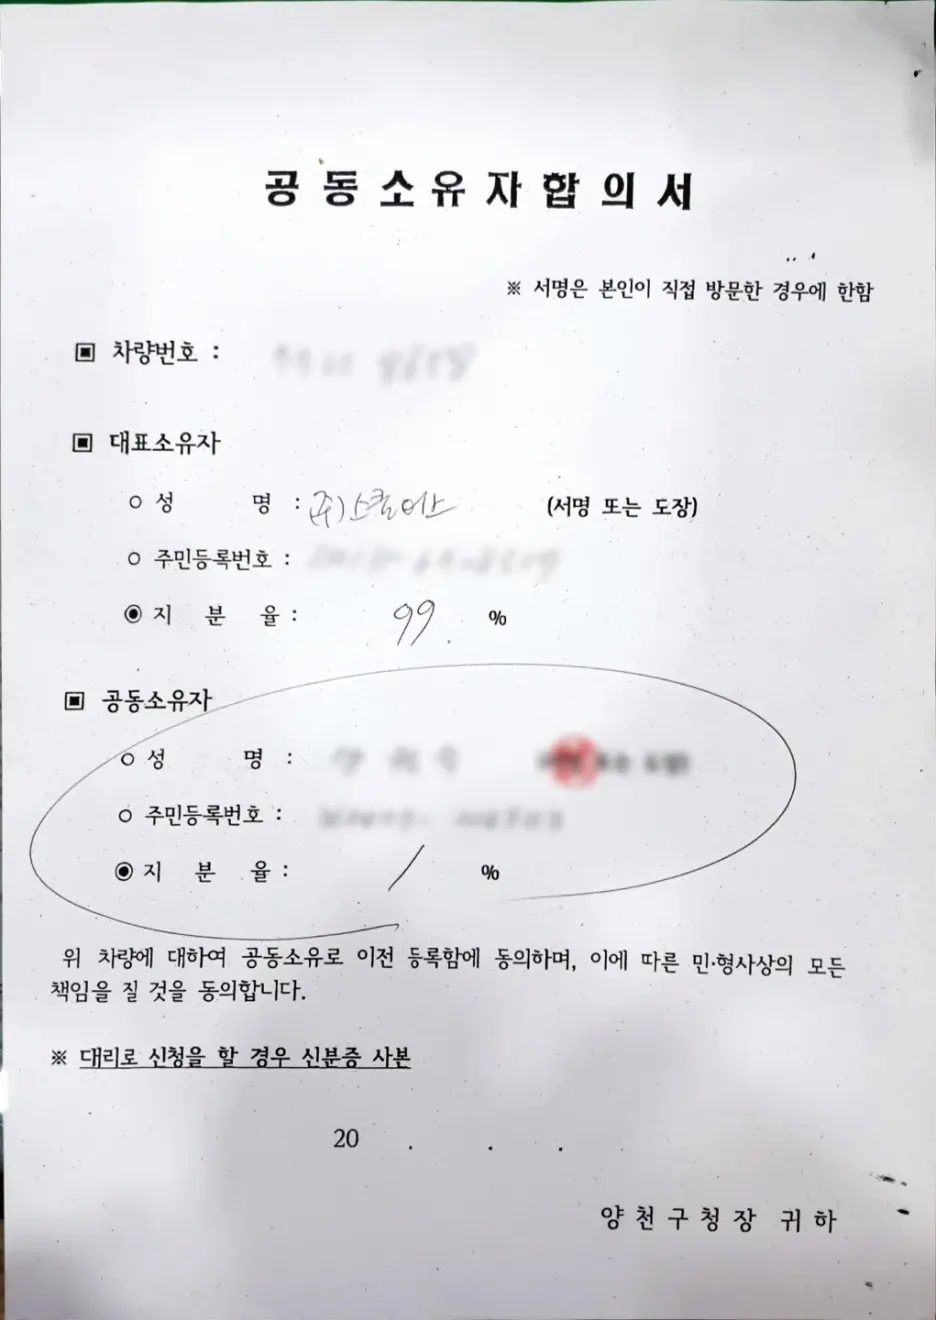 공동소유자합의서
※ 서명은 본인이 직접 방문한 경우에 한함
▣ 차량번호 :
▣ 대표소유자
○ 성 명 : (주)스쿨버스 (서명 또는 도장)
○ 주민등록번호 :
◉ 지 분 율 : 99 %
▣ 공동소유자
○ 성 명 :
○ 주민등록번호 :
◉ 지 분 율 : 1 %
위 차량에 대하여 공동소유로 이전 등록함에 동의하며, 이에 따른 민·형사상의 모든
책임을 질 것을 동의합니다.
※ 대리로 신청을 할 경우 신분증 사본
20 . . .
양천구청장 귀하